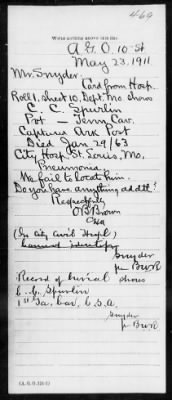 469
WRITE NOTHING ABOVE THIS LINE
A.G.O. 10-St
May 23, 1911
Mr. Snyder.
Card from Hosp.
Roll 1, Sheet 10, Dept. Mo. shows
C. C. Spurlin
Pvt - Tenn Cav.
Capture Ark Post
Died Jan 29/63
City Hosp. St. Louis, Mo.
Pneumonia
We fail to locate him.
Do you have anything addtl?
Respectfully
O B Brown
(In City Civil Hospl)
Snyder
per
Record of burial shows
C. C. Spurlin
1st Cav. C.S.A.
Snyder
per